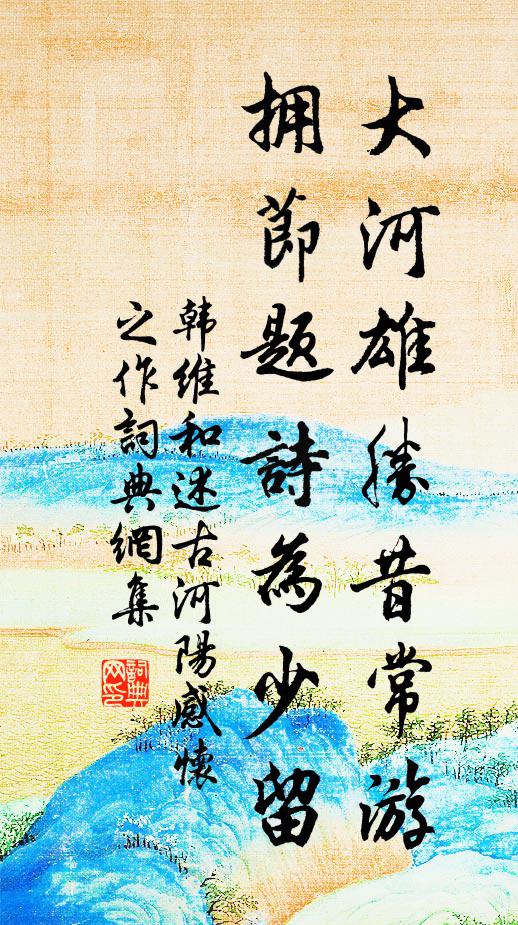 大河雄勝昔常游
拥節題詩為少留
韩維和述古河陽感懷
之作詞典網集
詞典
网印